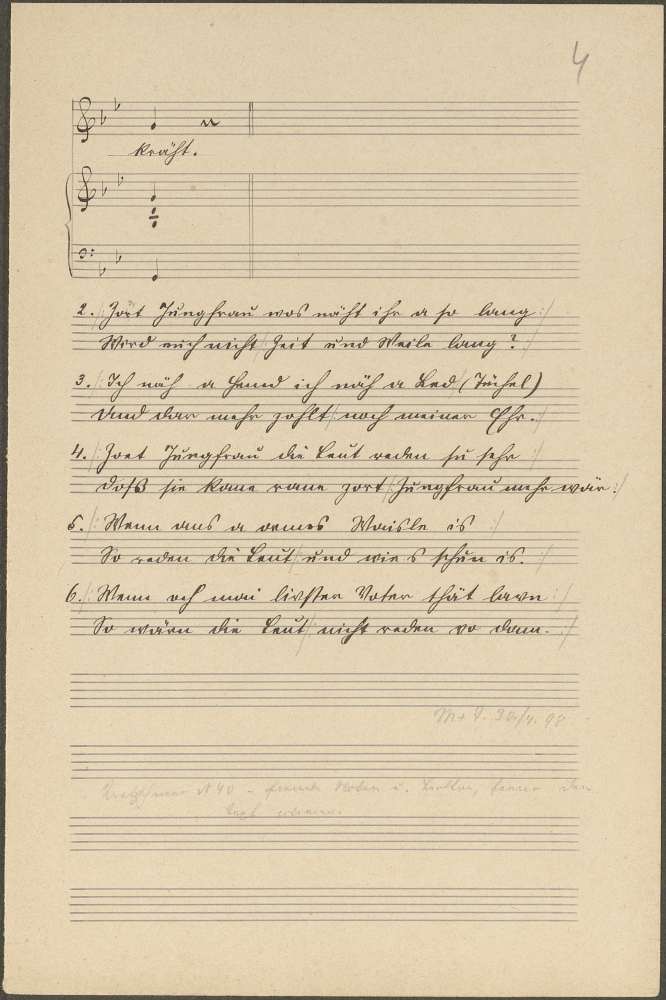 4
kräht.
2. /: Zart Jungfrau was näht ihr a so lang :/
Wird euch nicht / Zeit und Weile lang? :/
3. /: Ich näh a Hemd ich näh a Bad (Tüchel)
Und dar mehr zohlt / noch meiner Ehr. :/
4. /: Zart Jungfrau die Leut reden su sehr :/
doß sie kane rane zart / Jungfrau mehr wär :/
5. /: Wenn ans a armes Waisle is :/
So reden die Leut / und wie's schun is. :/
6. /: Wenn och mai liebster Voter thät lawn :/
So wären die Leut / nicht reden vo dam. :/
M + 4. 30/4. 98
N 40 - Noten u.